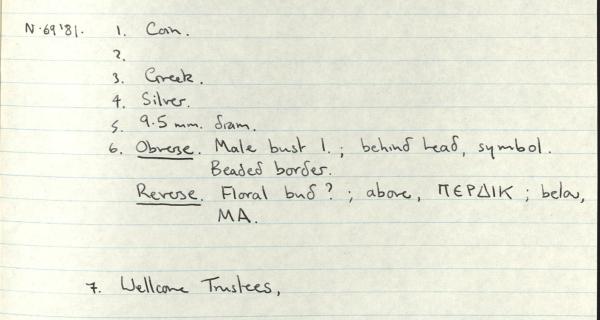 N.69'81. 1. Coin.
2.
3. Greek.
4. Silver.
5. 9.5 mm. diam.
6. Obverse. Male bust l.; behind head, symbol.
Beaded border.
Reverse. Floral bud?; above, ΠΕΡΔΙΚ; below,
MA.
7. Wellcome Trustees,